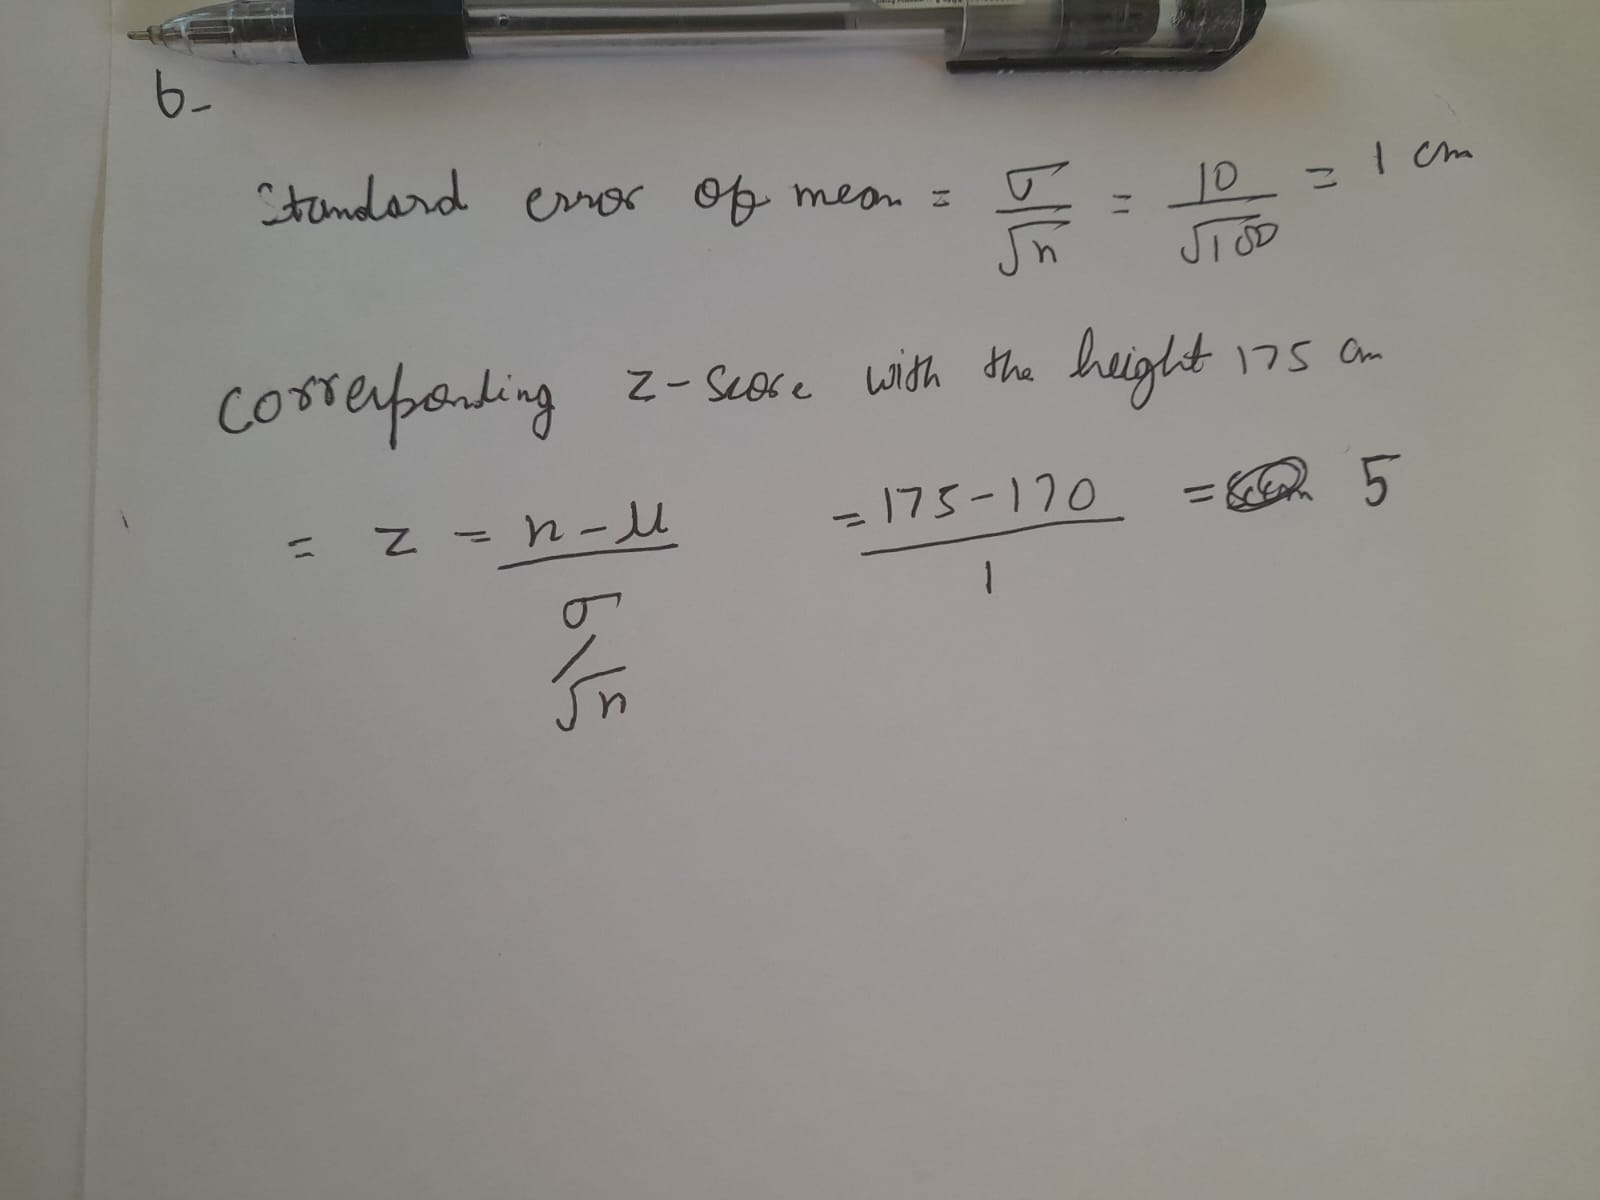 6-
Standard error of mean = σ/√n = 10/√100 = 1 cm
Corresponding z-Score with the height 175 cm
= z = x-μ / σ/√n = 175-170 / 1 = 5